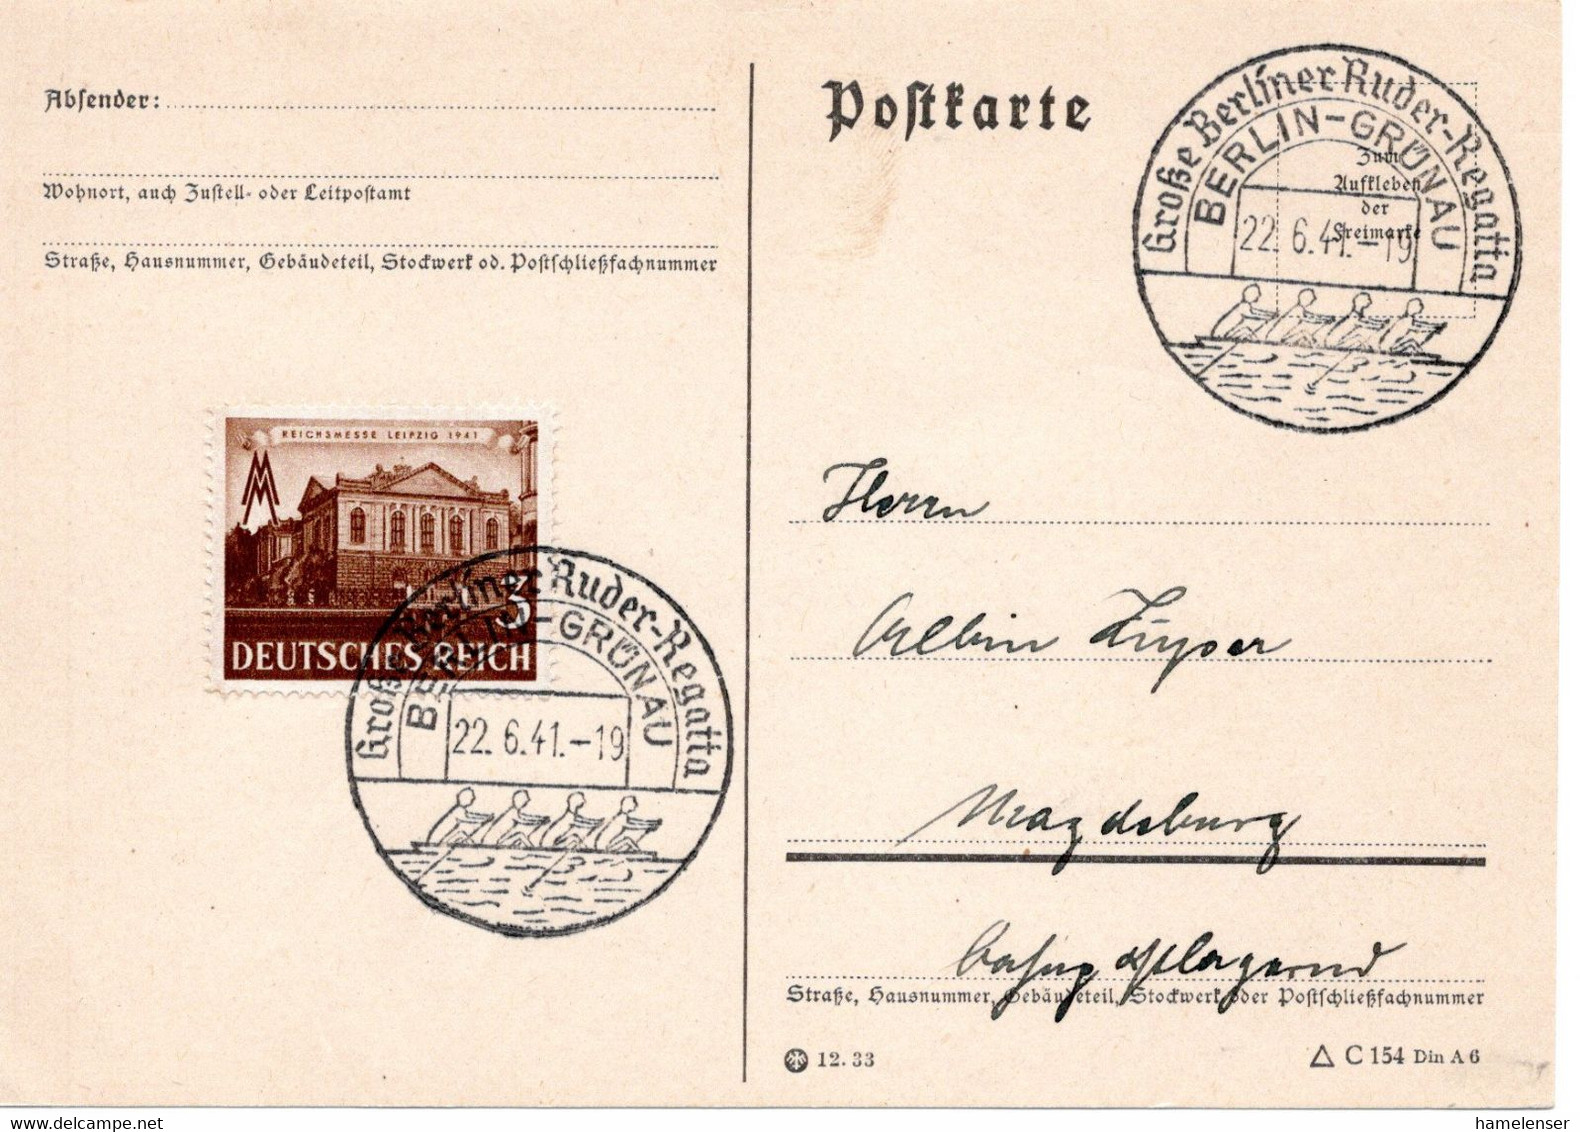 Absender:
Wohnort, auch Zustell- oder Leitpostamt
Straße, Hausnummer, Gebäudeteil, Stockwerk od. Postschließfachnummer
REICHSMESSE LEIPZIG 1941
3
DEUTSCHES REICH
Große Berliner Ruder-Regatta
BERLIN-GRÜNAU
22.6.41.-19
Postkarte
Große Berliner Ruder-Regatta
BERLIN-GRÜNAU
22.6.41.-19
Zum
Aufkleben
der
Freimarke
Herrn
Albin
Magdeburg
Straße, Hausnummer, Gebäudeteil, Stockwerk oder Postschließfachnummer
12.33
C 154 Din A 6
hamelenser